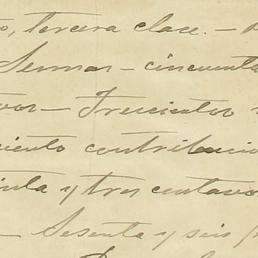 o, tercera clase. –
Sumas – cincuenta
vos – Trescientos
iento contribucio
inta y tres centavos
– Sesenta y seis p